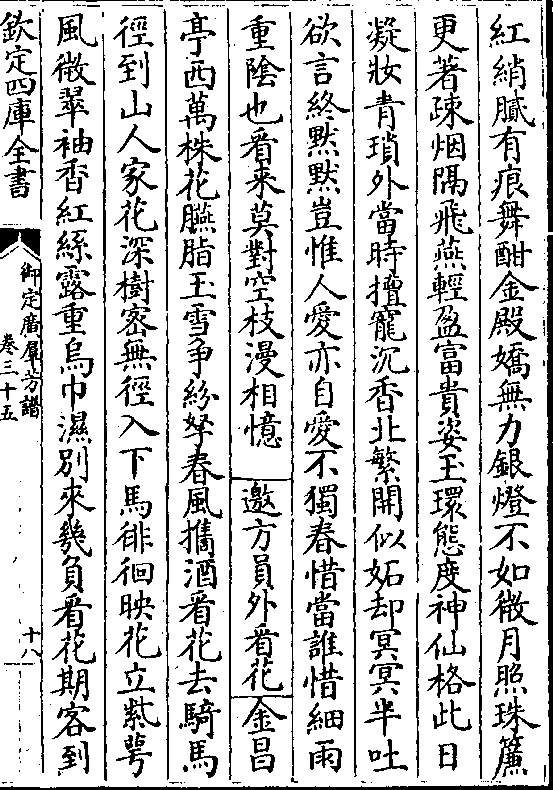 紅綃膩有痕舞酣金殿嬌無力銀燈不如微月照珠簾
更著疎烟隔飛燕輕盈富貴姿玉環態度神仙格此日
凝妝青瑣外當時擅寵沉香北繁開似妬却冥冥半吐
欲言終默默豈惟人愛亦自愛不獨春惜當誰惜細雨
重陰也看来莫對空枝漫相憶 邀方員外看花 金昌
亭西萬株花臙脂玉雪争紛拏春風攜酒看花去騎馬
徑到山人家花深樹宻無徑入下馬徘徊映花立紫萼
風微翠袖香紅絲露重烏巾濕別來幾負看花期客到
欽定四庫全書
御定廣羣芳譜
卷三十五
十八